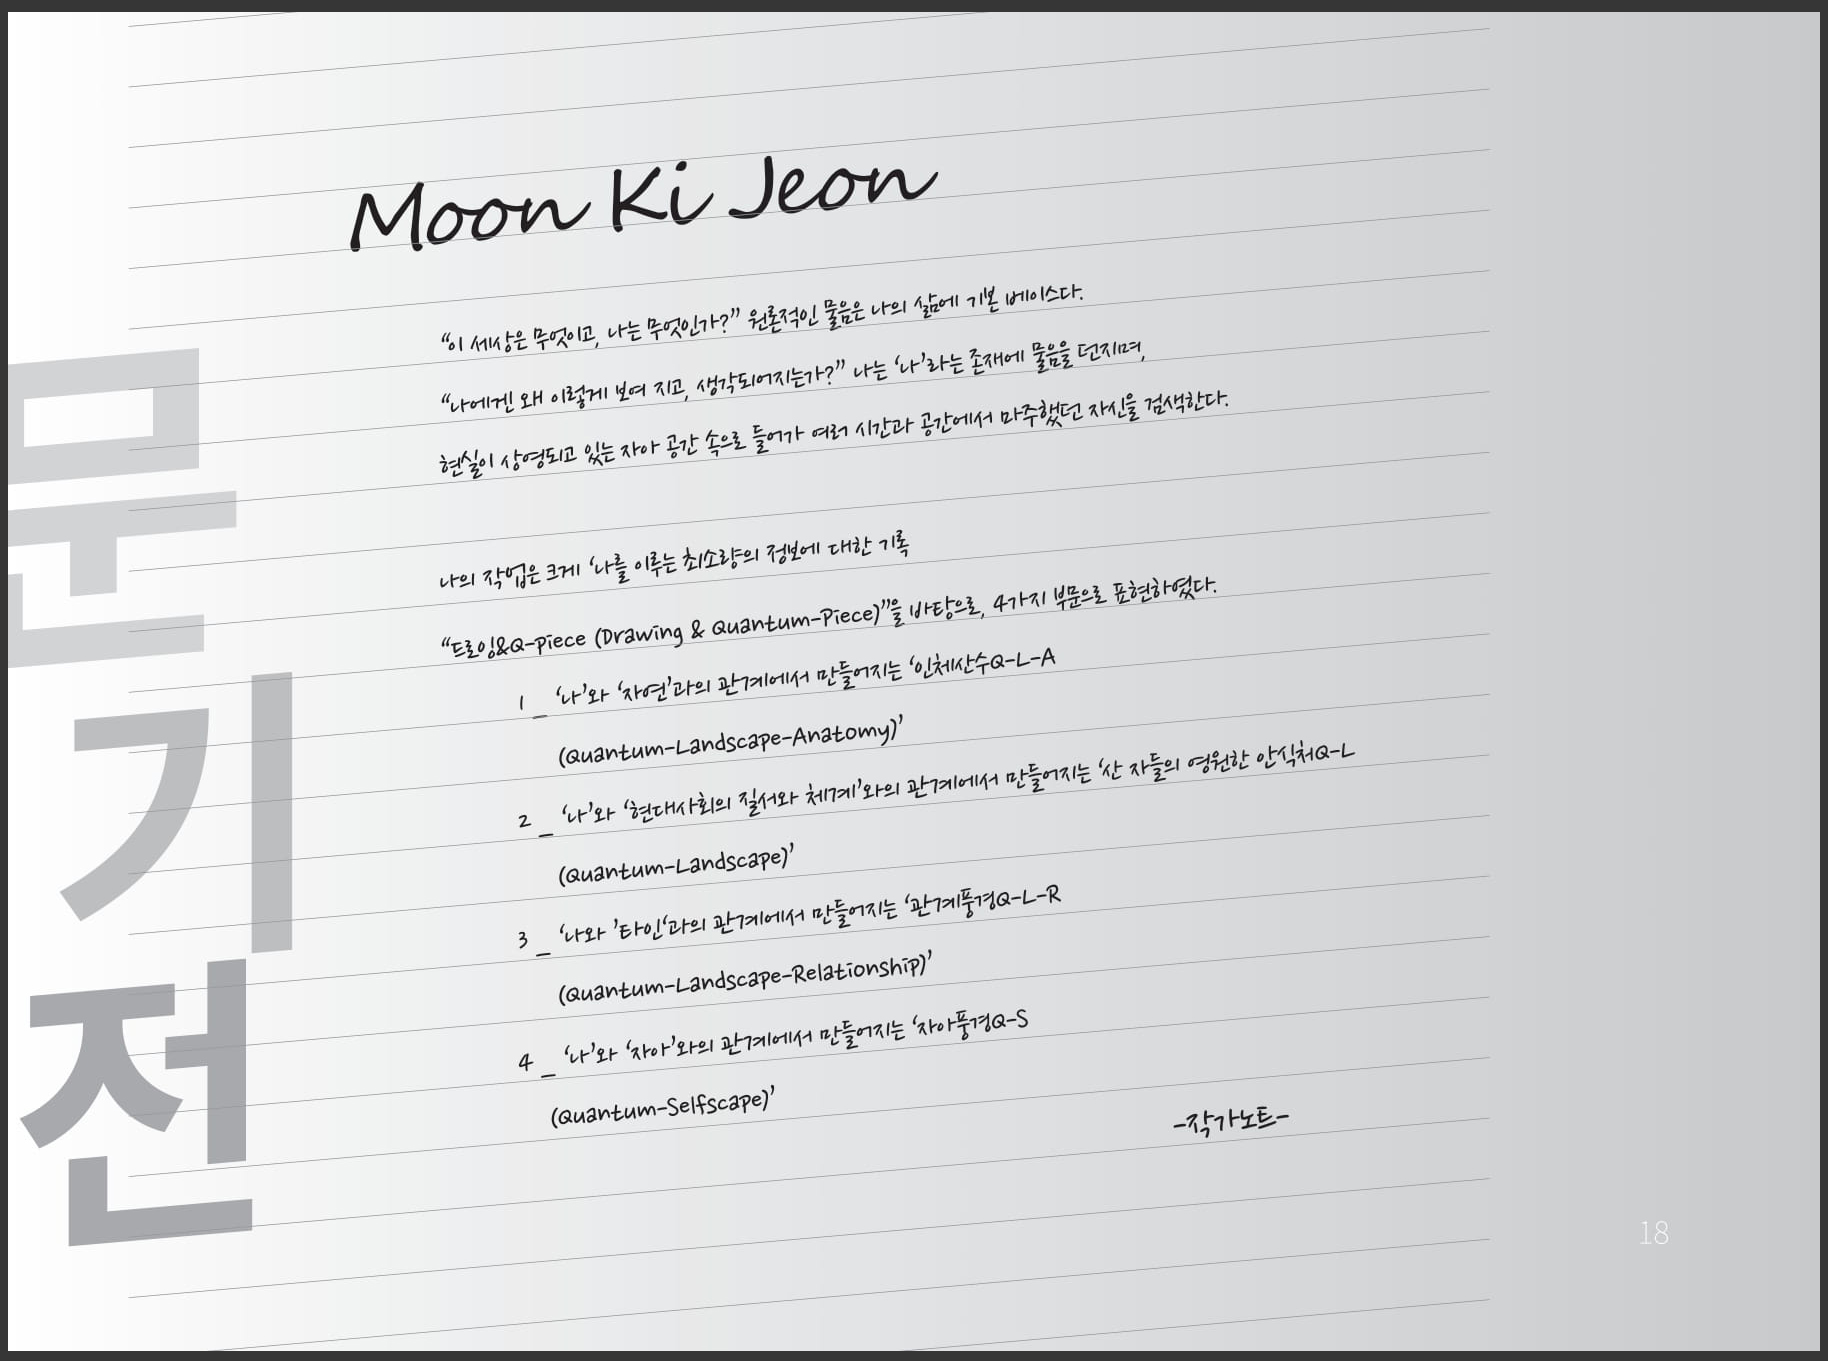 Moon Ki Jeon
“이 세상은 무엇이고, 나는 무엇인가?” 원론적인 물음은 나의 삶에 기본 베이스다.
“나에겐 왜 이렇게 보여 지고, 생각되어지는가?” 나는 ‘나’라는 존재에 물음을 던지며,
현실이 상영되고 있는 자아 공간 속으로 들어가 여러 시간과 공간에서 마주했던 자신을 검색한다.
나의 작업은 크게 ‘나를 이루는 최소량의 정보에 대한 기록
“드로잉&Q-piece (Drawing & Quantum-Piece)”을 바탕으로, 4가지 부문으로 표현하였다.
1 _ ‘나’와 ‘자연’과의 관계에서 만들어지는 ‘인체산수Q-L-A
(Quantum-Landscape-Anatomy)’
2 _ ‘나’와 ‘현대사회의 질서와 체계’와의 관계에서 만들어지는 ‘산 자들의 영원한 안식처Q-L
(Quantum-Landscape)’
3 _ ‘나와 ’타인‘과의 관계에서 만들어지는 ‘관계풍경Q-L-R
(Quantum-Landscape-Relationship)’
4 _ ‘나’와 ‘자아’와의 관계에서 만들어지는 ‘자아풍경Q-S
(Quantum-Selfscape)’
-작가노트-
문
기
전
18